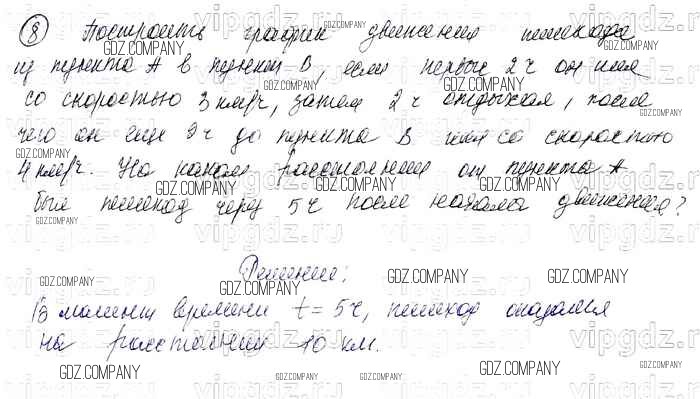 8 Построить график движения пешехода
из пункта А в пункт В, если первые 2 ч он шел
со скоростью 3 км/ч, затем 2 ч отдыхал, после
чего он еще 2 ч до пункта В шел со скоростью
4 км/ч. На каком расстоянии от пункта А
был пешеход через 5 ч после начала движения?
Решение:
В момент времени t = 5 ч, пешеход оказался
на расстоянии 10 км.
GDZ.COMPANY
vipgdz.ru